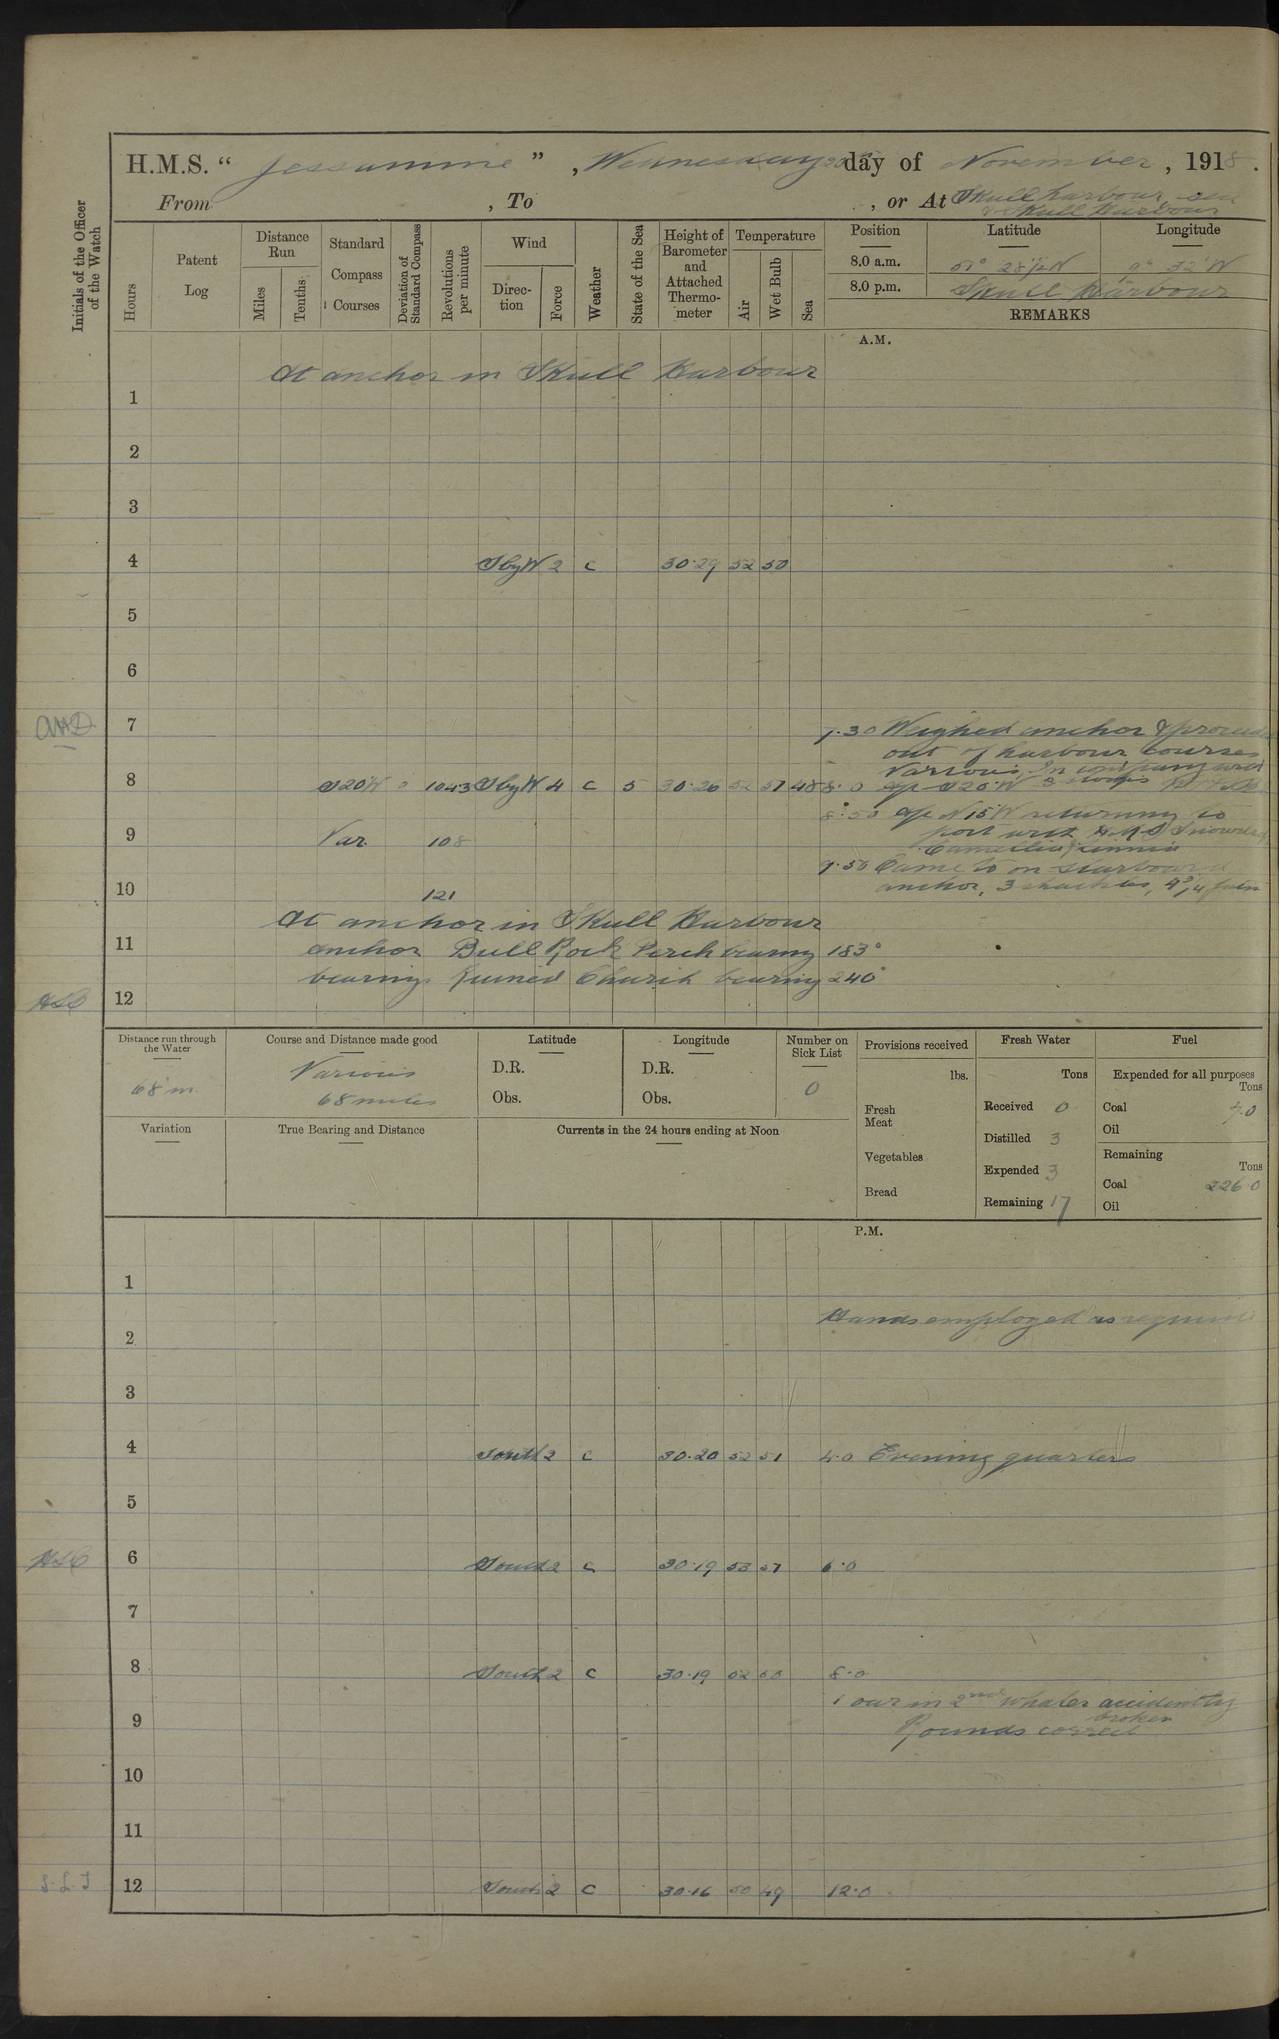 H.M.S. " Jessamine " , Wednesday 20th day of November , 1918 .
From , To , or At Skull harbour, sea
& Skull Harbour
Initials of the Officer of the Watch
Hours
Patent Log
Distance Run
Miles
Tenths
Standard Compass Courses
Deviation of Standard Compass
Revolutions per minute
Wind
Direction
Force
Weather
State of the Sea
Height of Barometer and Attached Thermometer
Temperature
Air
Wet Bulb
Sea
Position Latitude Longitude
8.0 a.m. 51° 28½ N 9° 32' W
8.0 p.m. Skull Harbour
REMARKS
A.M.
At anchor in Skull Harbour
1
2
3
4 SbyW 2 c 30.29 52 50
5
6
AHD 7 7.30 Weighed anchor & proceeded
out of harbour courses
Various. In company with
8 S20W 0 104.3 SbyW 4 c 5 30.26 52 51 48 8.0 a/c S20°W 3 sloops
8.50 a/c N15W returning to
9 Var. 108 port with H.M.S. Snowdrop
Camellia
9.50 Came to on starboard
10 121 anchor, 3 shackles, 4¾ fms
At anchor in Skull Harbour
11 anchor Bull Rock Perch bearing 183°
bearings Ruined Church bearing 240°
12
Distance run through the Water
68 m
Course and Distance made good
Various
68 miles
Latitude
D.R.
Obs.
Longitude
D.R.
Obs.
Number on Sick List
0
Provisions received
lbs.
Fresh Meat
Vegetables
Bread
Fresh Water
Tons
Received 0
Distilled 3
Expended 3
Remaining 17
Fuel
Expended for all purposes
Tons
Coal 7.0
Oil
Remaining
Tons
Coal 226.0
Oil
Variation
True Bearing and Distance
Currents in the 24 hours ending at Noon
P.M.
1
Hands employed as required
2
3
4 South 2 c 30.20 52 51 4.0 Evening quarters
5
6 South 2 c 30.19 53 51 6.0
7
8 South 2 c 30.19 52 50 8.0
1 oar in 2nd whaler accidently
broken
9 Rounds correct
10
11
12 South 2 c 30.16 50 49 12.0